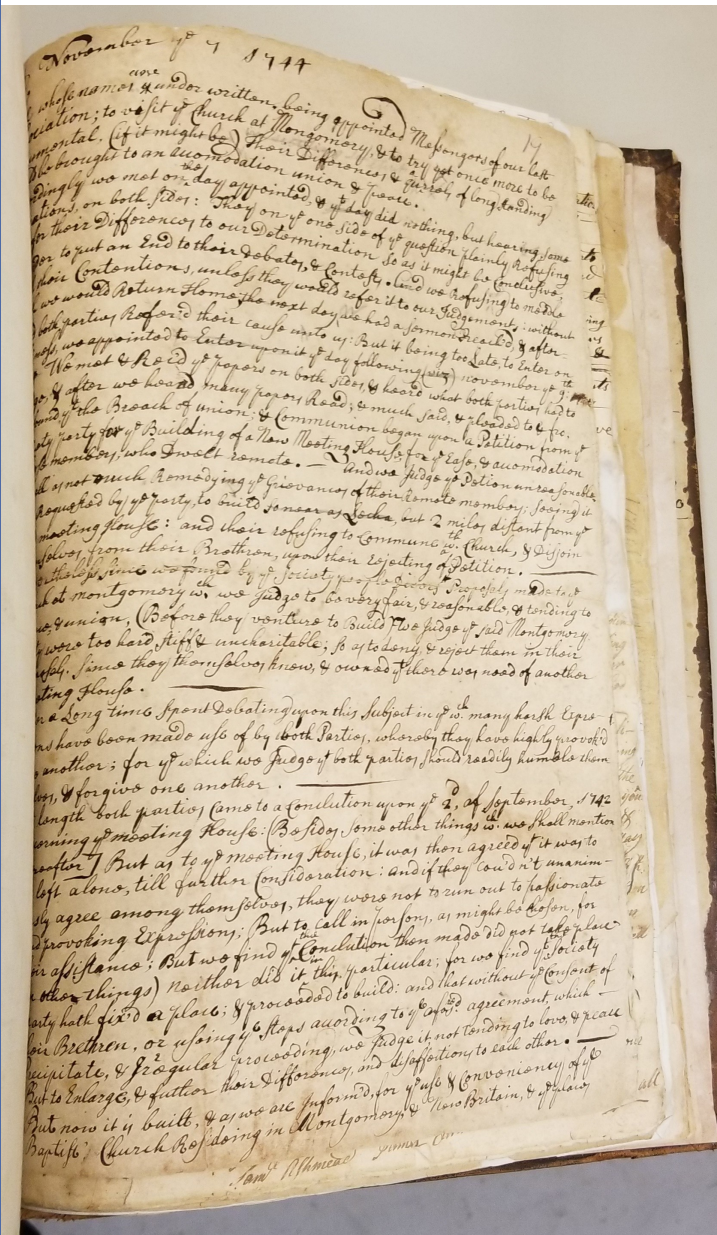 November ye 7 1744
17
whose names are under written being appointed Messengers of our last
ciation; to visit ye Church at Montgomery, & to try yet once more to be
mental, (if it might be) Their Differences & Jarrels of long standing
be brought to an accomodation union & peace.
rdingly we met on the day appointed, & ye day did nothing, but hearing some
ations, on both sides: They on ye one side of ye question plainly Refusing
for their Differences to our Determination so as it might be Conclusive,
der to put an End to their Debates, & Contests. And we Refusing to meddle
their Contentions, unless they would refer it to our Judgement; without
we would Return Home. the next day we had a sermon Preach'd, & after
both parties Refer'd their cause unto us: But it being too Late, to Enter on
ness, we appointed to Enter upon it ye day following (viz) november ye 9th
We met & Re'd ye papers on both sides, & heard what both parties had to
& after we heard many papers Read; & much said, & pleaded to & fro,
ound ye the Breach of union; & Communion began upon a Petition from ye
ety party for ye Building of a New Meeting House, for ye Ease, & acomodation
members, who Dwelt remote. — And we Judge ye Petion unreasonable,
as not much Remedying ye Grievances of their remote members; seeing it
Requested by ye party, to build so near as but 2 miles distant from ye
meeting House: and their refusing to Commune wth ye Church, & Disjoin
selves, from their Brethren, upon their rejecting ye Petition. —
ertheless since we found by ye Society people Proposels made to ye
at montgomery wch we Judge to be very fair, & reasonable, & tending to
& union, (Before they venture to Build) We Judge ye said Montgomery
were too hard stiff & uncharitable; so as to deny, & reject them in their
. since they themselves knew, & owned yt there was need of another
ting House. —
a Long time spent Debating upon this Subject in ye wch many harsh Expre-
ns have been made use of by both Parties, whereby they have highly provok'd
another; for ye which we Judge yt both parties should readily humble them
lves, & forgive one another. —
length both parties Came to a Conclution upon ye 2d, of September, 1742
erning ye meeting House: (Besides some other things wch we shall mention
reafter) But as to ye meeting House, it was then agreed yt it was to
left alone, till further Consideration: and if they could n't unanim-
sly agree among themselves, they were not to run out to passionate
d provoking Expressions; But to Call in persons, as might be Chosen, for
ir assistance: But we find ye Conclution then made did not take place
other things) neither did it in this particular; for we find ye Society
arty hath fix'd a place; & proceeded to build: and that without ye Consent of
eir Brethren, or using ye Steps acording to ye afosd. agreement, which —
ecipitate, & Irregular proceeding, we Judge it not tending to love, & peace
But to Enlarge, & futher their Differences, and disaffections to each other. —
But now it is built, & as we are Inform'd, for ye use & Conveniency of ye
Baptist Church Residing in Montgomery & New Britain, & ye places
Saml Ashmead